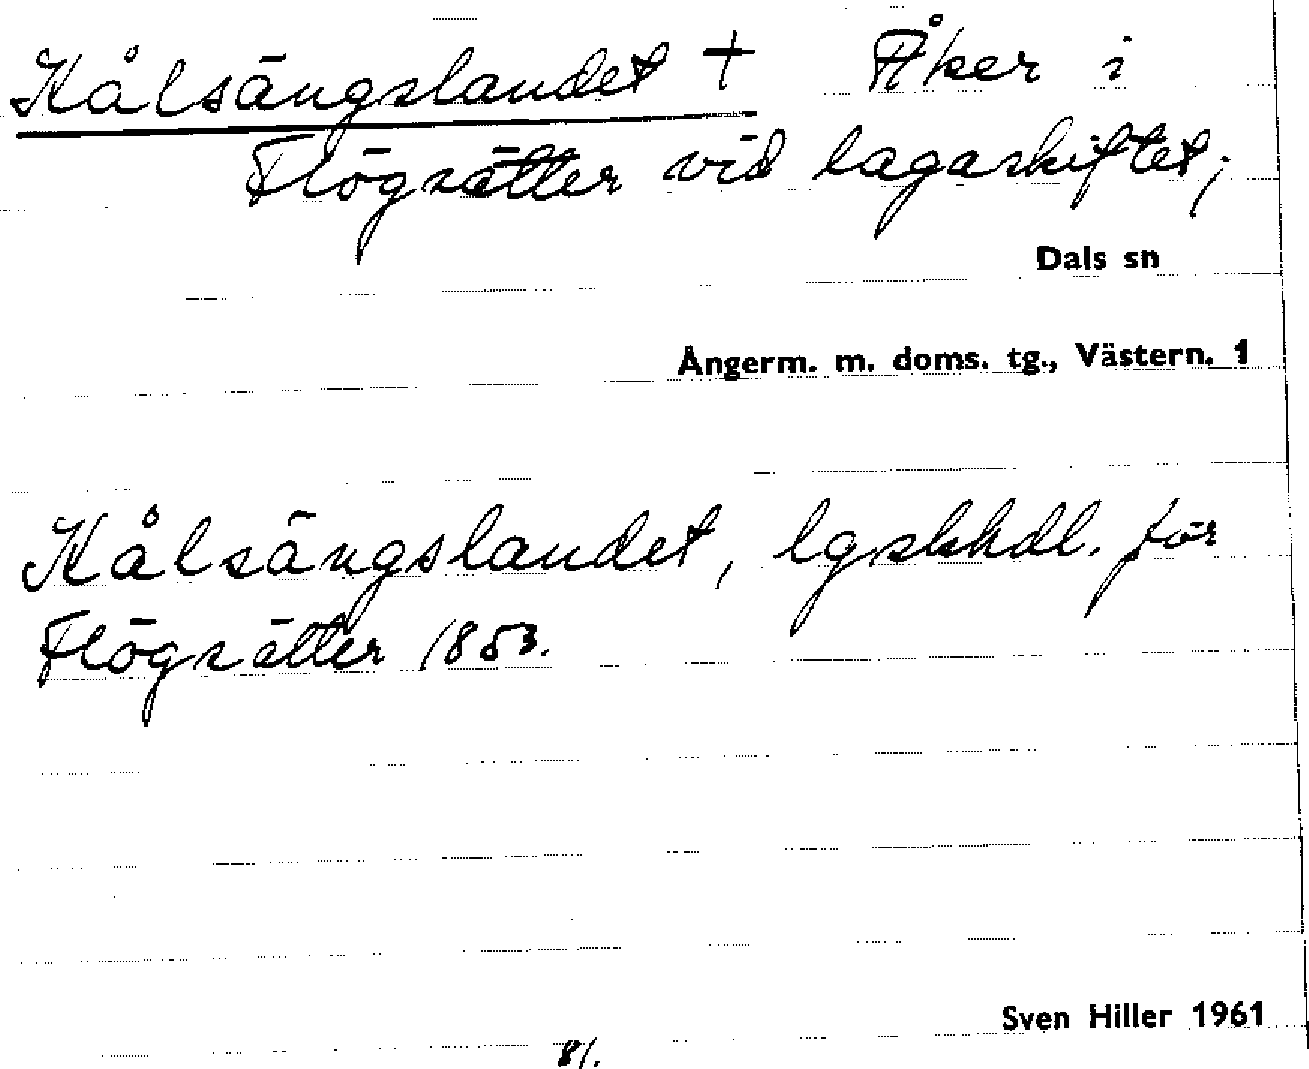 Kålsängslandet + Åker i
Flögsätter vid lagaskiftet;
Dals sn
Ångerm. m. doms. tg., Västern. 1
Kålsängslandet, lgskhdl. för
Flögsätter 1853.
Sven Hiller 1961
81.